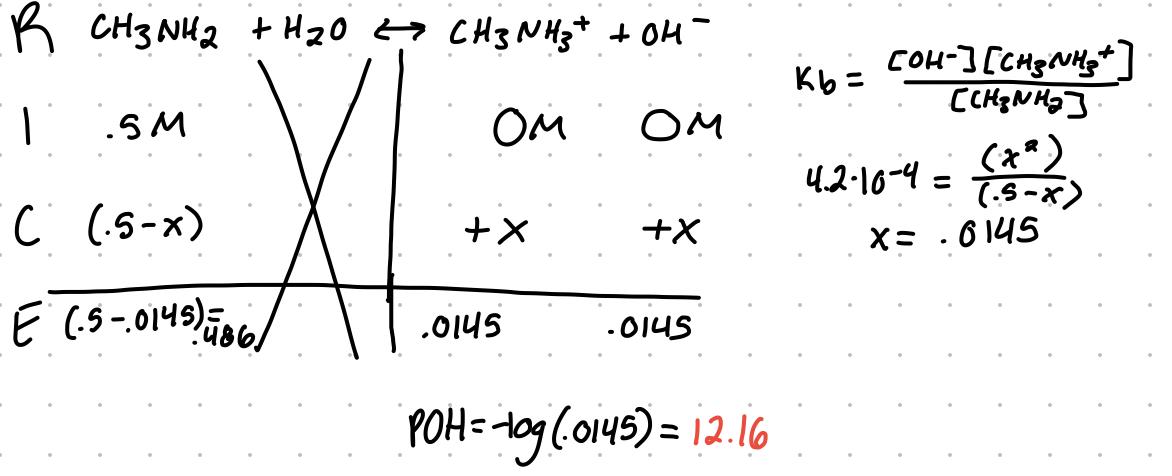 R CH₃NH₂ + H₂O ↔ CH₃NH₃⁺ + OH⁻
I .5M 0M 0M
C (.5-x) +x +x
E (.5-.0145)= .486 .0145 .0145
Kb = [OH⁻][CH₃NH₃⁺] / [CH₃NH₂]
4.2·10⁻⁴ = (x²) / (.5-x)
x = .0145
POH = -log(.0145) = 12.16